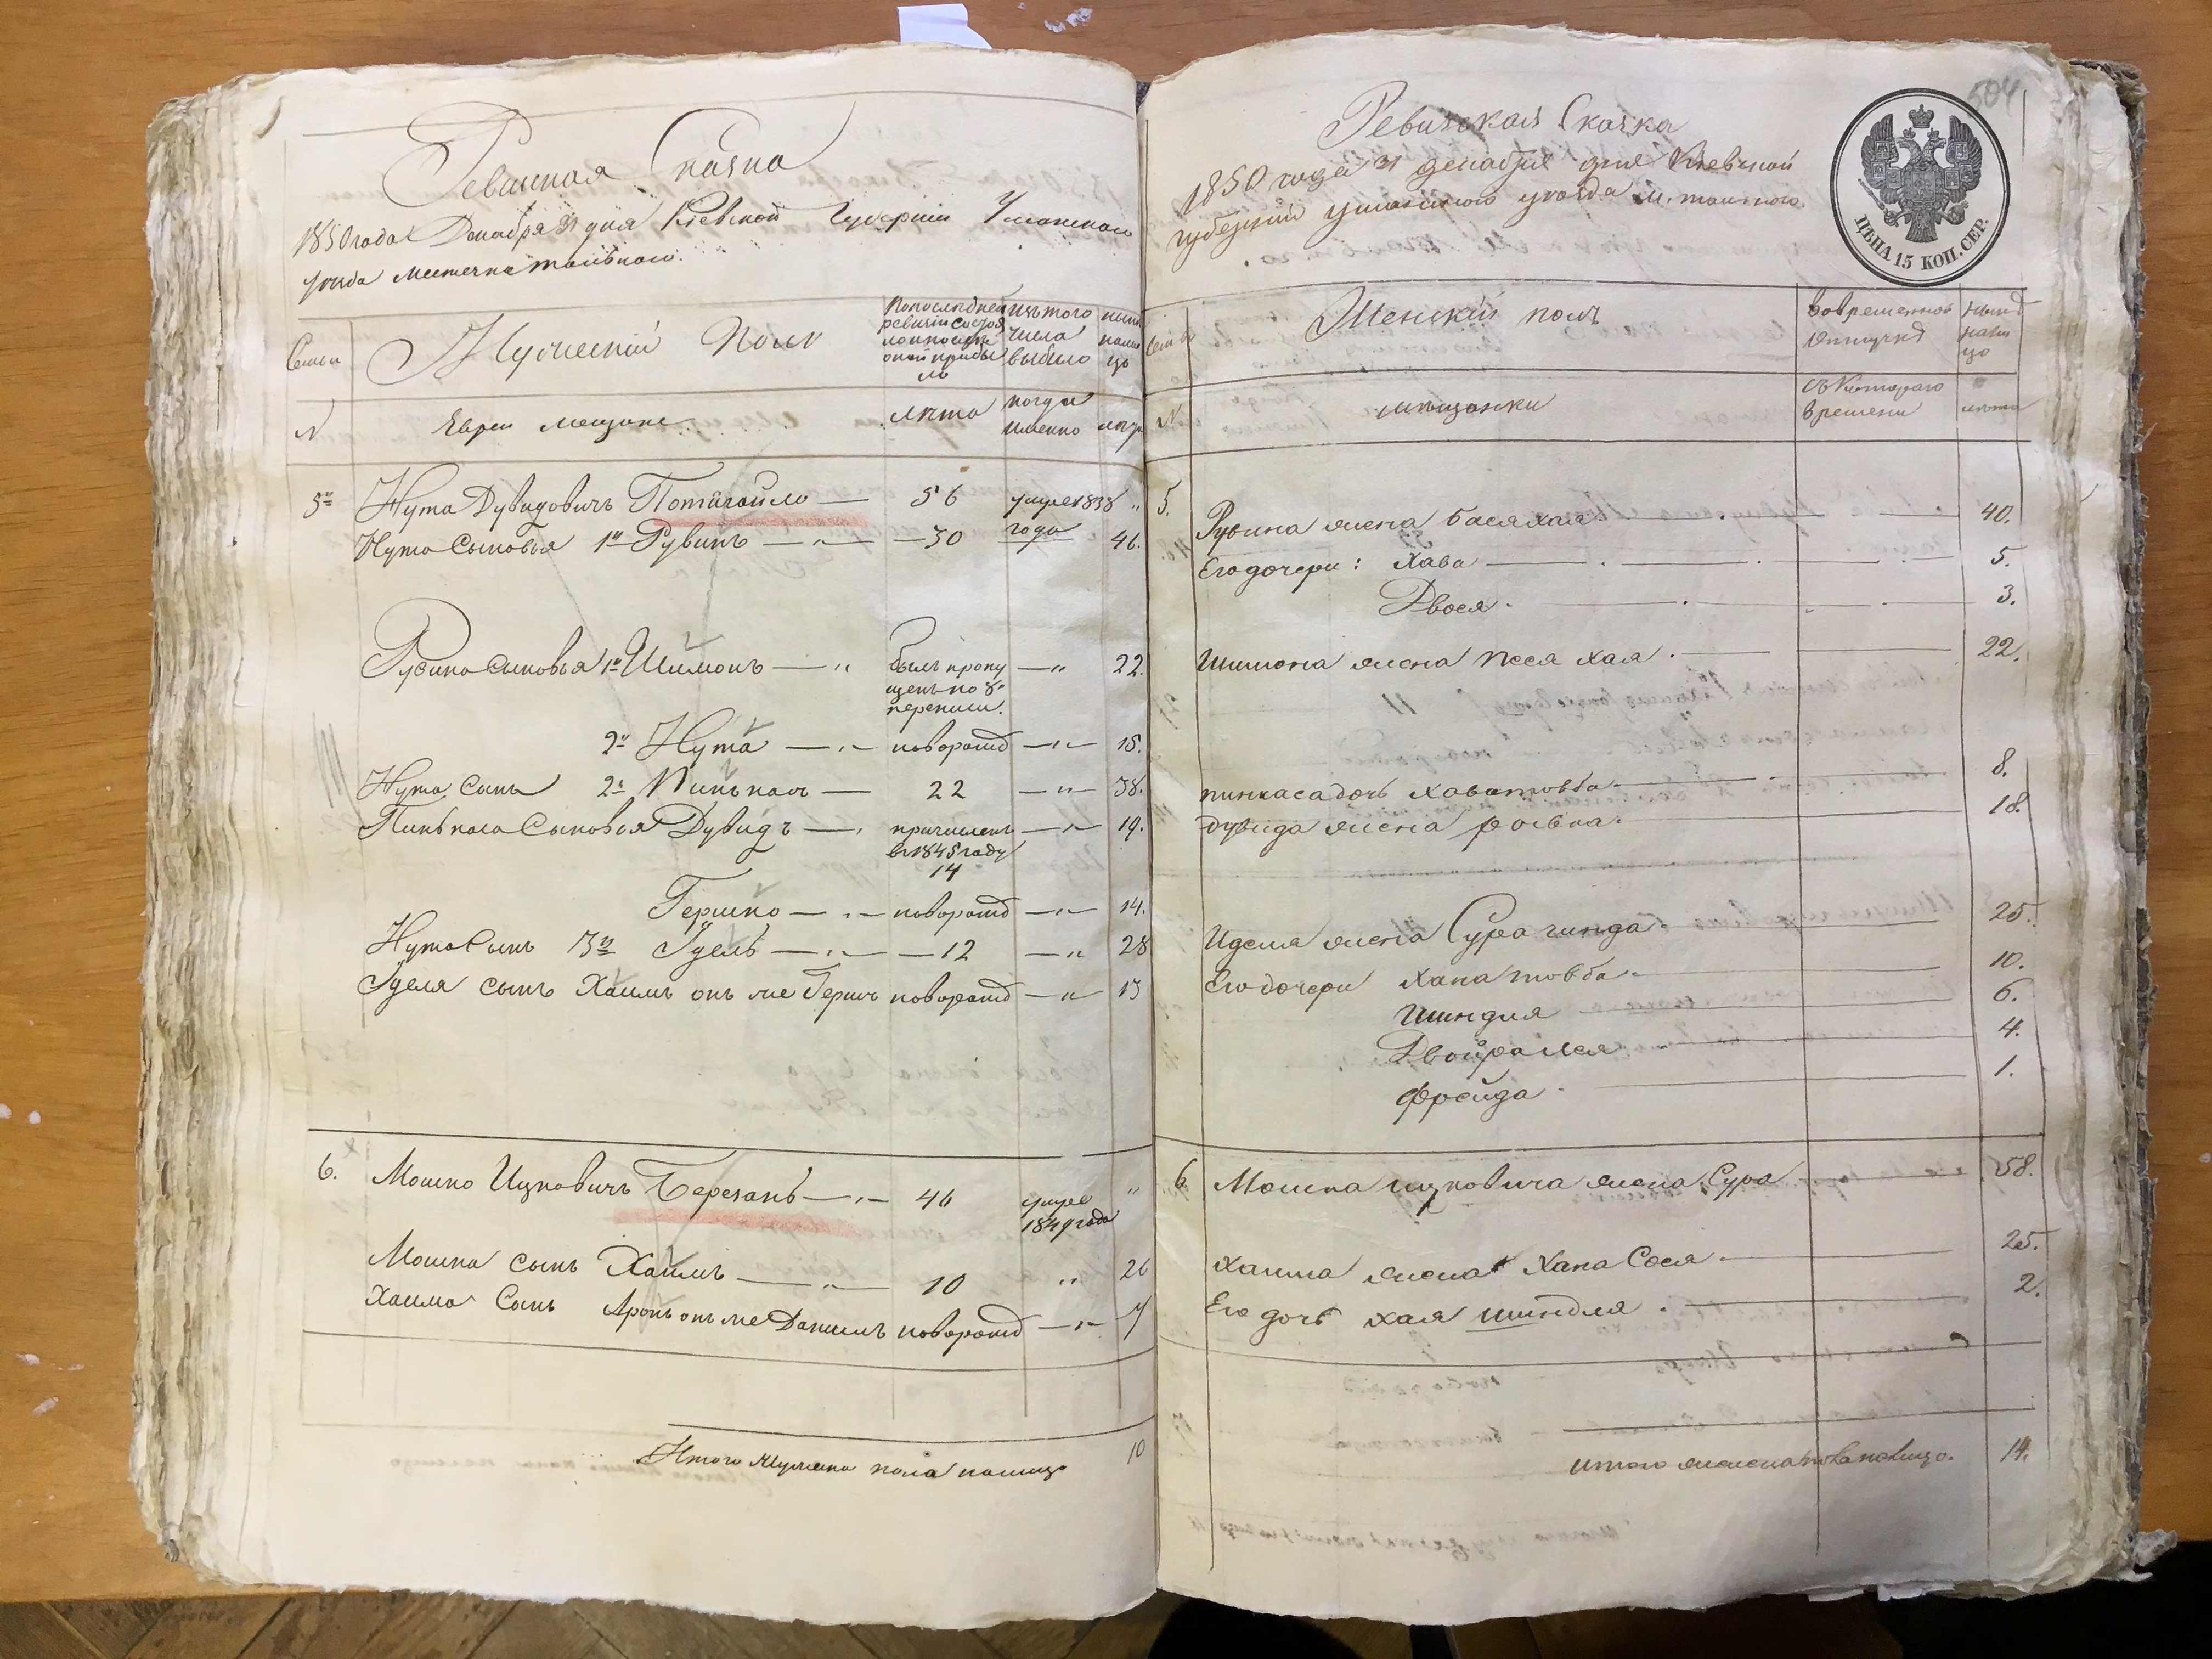 Ревизкая Сказка
1850 года Декабря 31 дня Киевской Губернии Уманского
уезда местечка Тального.
Семьи
Мужеский Полъ
По последней ревизии состояло и после оной прибыло
Изъ того числа выбыло
ныне на лицо
N
Евреи мещане
лета
когда именно
лета
5й
Нута Дувидовичъ Потигайло — 56 умре 1838 года "
Нута Сыновья 1й Рувинъ — " — 30 46.
Рувина сыновья 1й Шимонъ — " былъ пропущенъ по 8й переписи. — " 22.
2й Нута — " — новорожд — " — 15.
Нута Сынъ 2й Пинькасъ — 22 — " — 38.
Пинькаса Сыновья Дувидъ — " причисленъ в 1845 году 14 — " — 19.
Гершко — " — новорожд — " — 14.
Нута Сынъ 3й Идель — " — 12 — " 28
Иделя сынъ Хаимъ онъ же Гершъ новорожд — " — 13
6. Мошко Ицковичъ Березань — " — 46 умре 1849 года "
Мошка сынъ Хаимъ — " — 10 " 26
Хаима Сынъ Аронъ онъ же Данилъ новорожд — " — 7
Итого мужеска пола налицо 10
504
Ревизская Сказка
1850 года 31 декабря дня Киевской
губернии уманского уезда м. тального
ЦѢНА 15 КОП. СЕР.
Семьи
Женский полъ
Во временной отлучке
ныне на лицо
N
мещанки
съ Котораго времени
лета
5. Рувина жена Бася Хая 40.
Его дочери: Хава 5.
Двося 3.
Шимона жена Песя Хая 22.
пинкаса дочь Хава товба 8.
дувида жена ройва 18.
Иделя жена Сура гинда 25.
Его дочери Хана товба 10.
Шиндля 6.
Двойра Лея 4.
Фрейда 1.
6. Мошка ицковича жена Сура 58.
Хаима жена Хана Сося 25.
Его дочь хая шиндля 2.
итого женска пола налицо. 14.